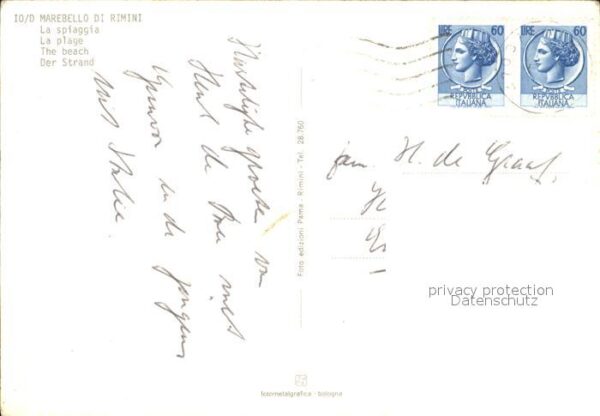 IO/D MAREBELLO DI RIMINI
La spiaggia
La plage
The beach
Der Strand
LIRE 60
REPVBBLICA
ITALIANA
LIRE 60
REPVBBLICA
ITALIANA
Hartelijke groeten van
Henk de
en de jongens
uit Italie.
Foto edizioni Pama - Rimini - Tel. 28.760
fam. H. de Graaf,
privacy protection
Datenschutz
fotometalgrafica - bologna